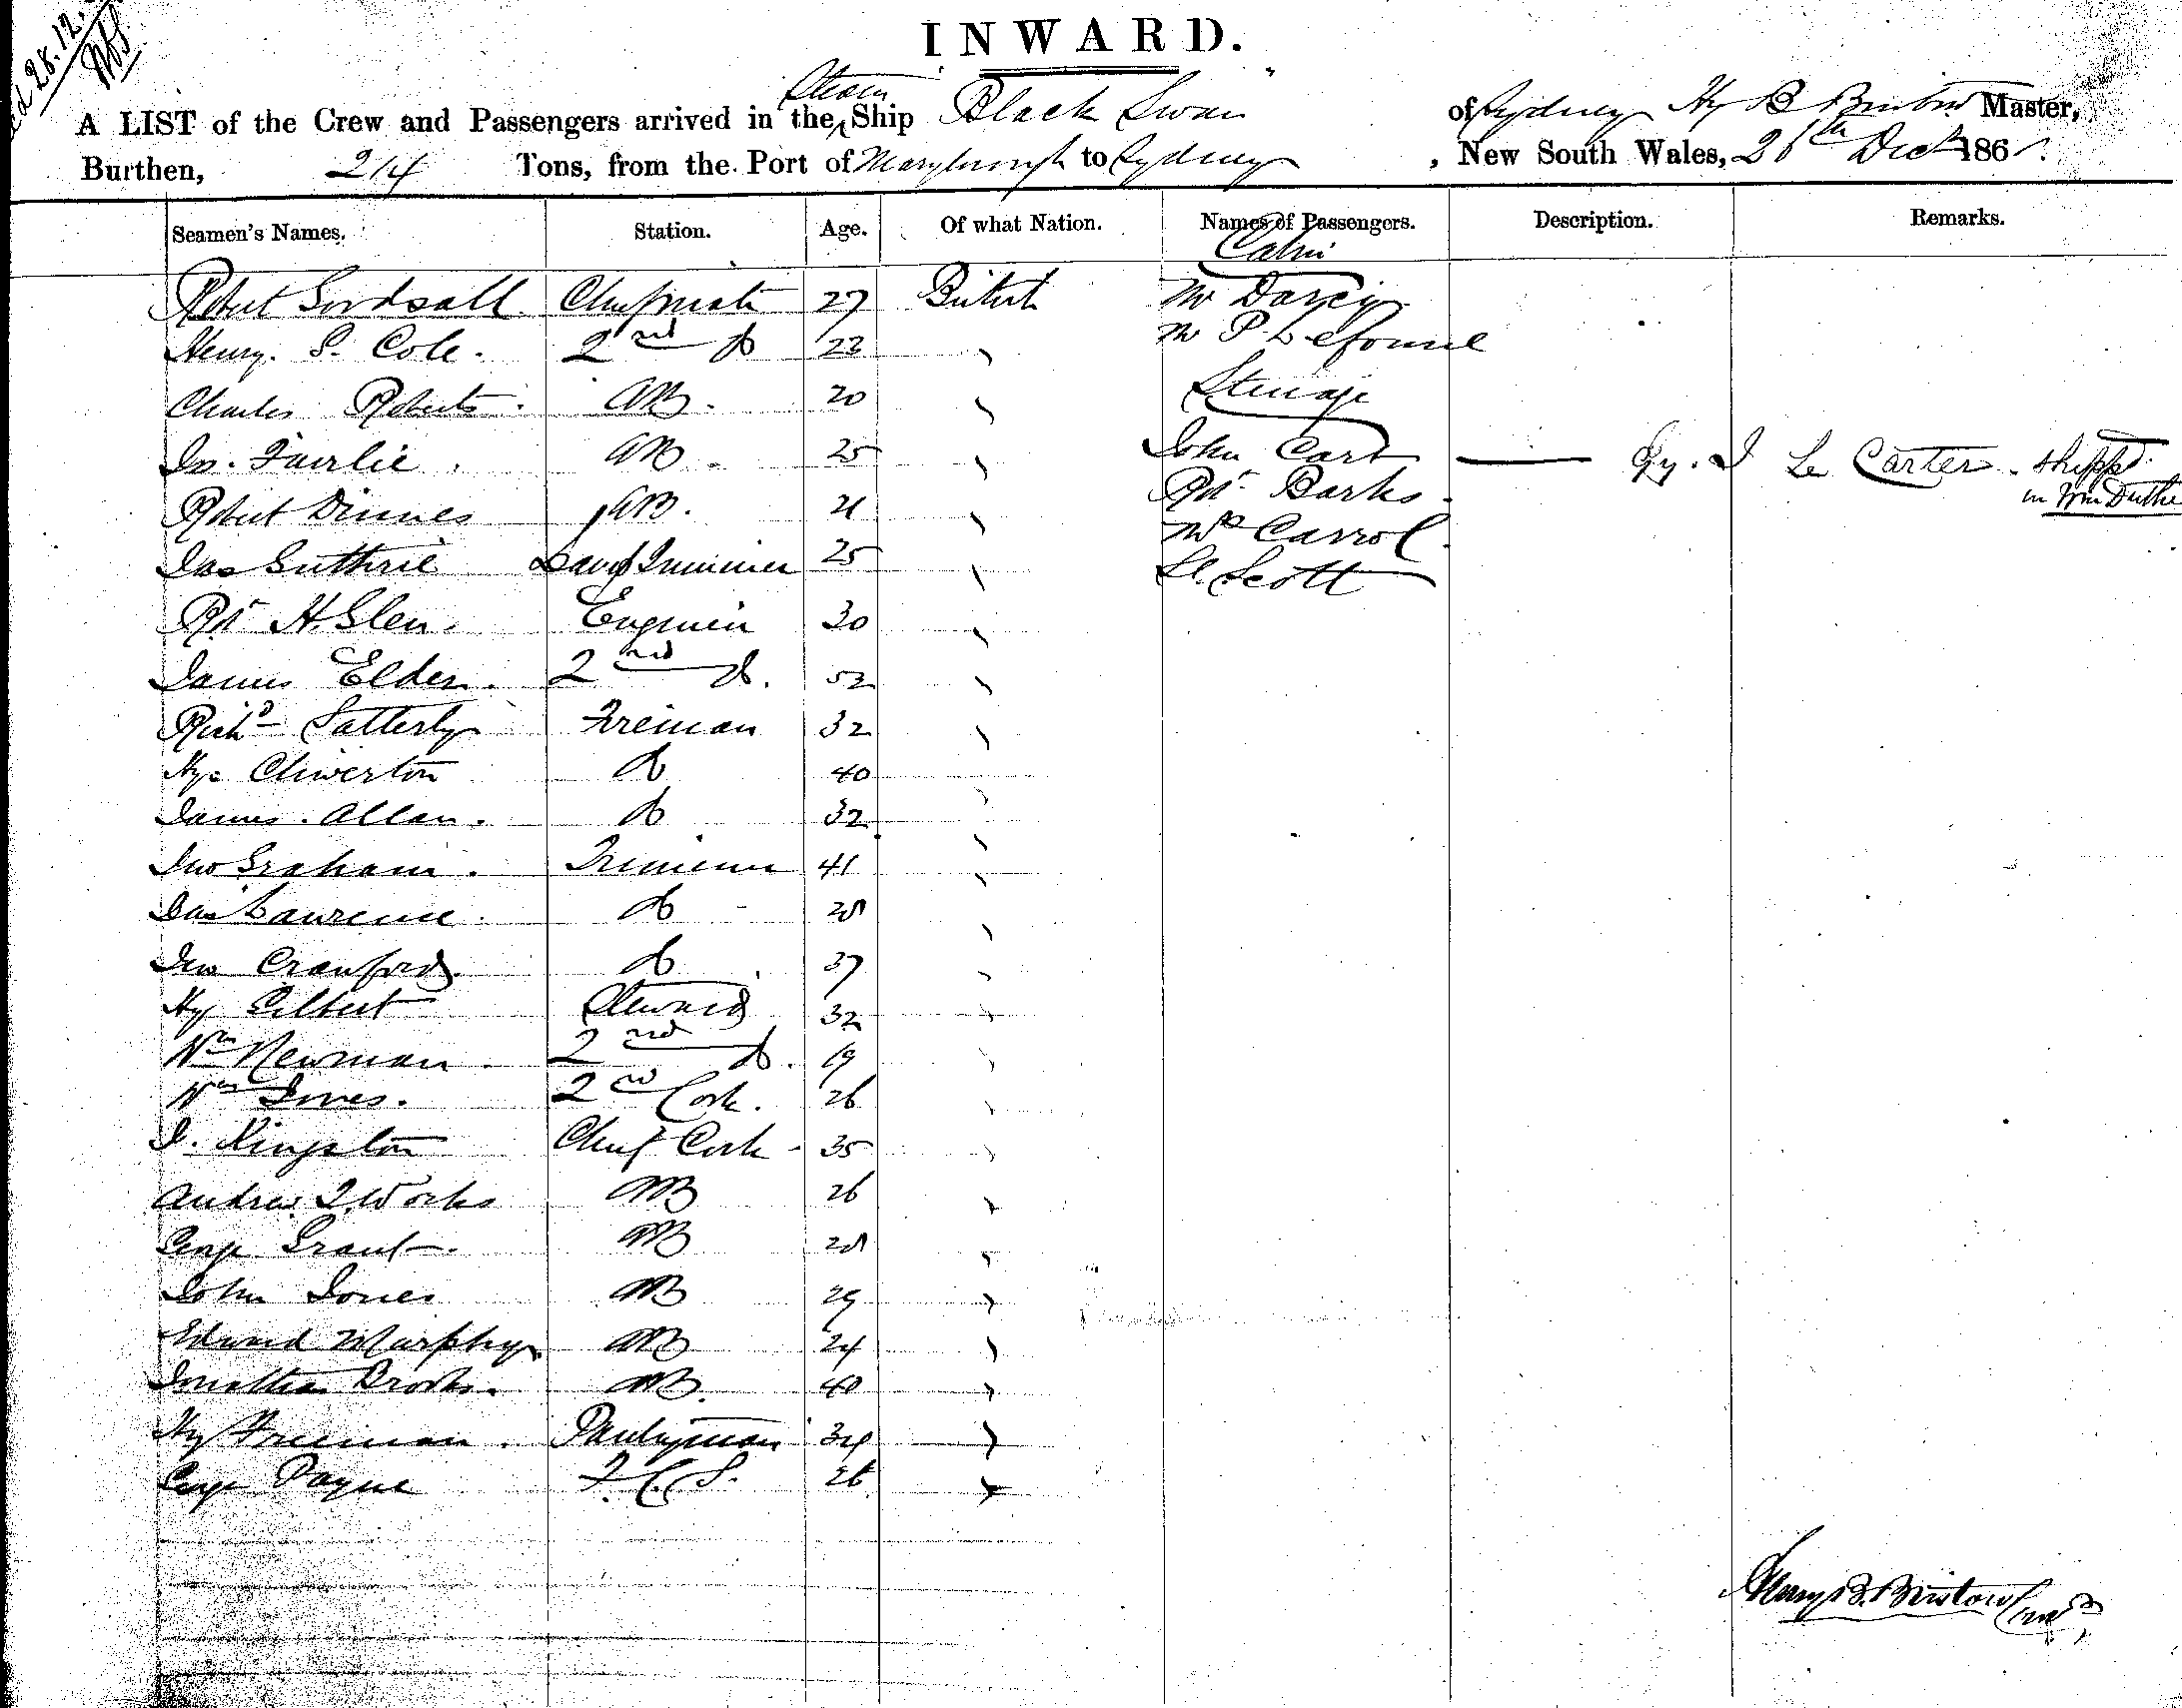 28.12.
INWARD.
A LIST of the Crew and Passengers arrived in the Steam Ship Black Swan of Sydney Hy B Bristow Master,
Burthen, 214 Tons, from the Port of Maryborough to Sydney, New South Wales, 26th Decr 186
Seamen's Names. Station. Age. Of what Nation. Names of Passengers. Description. Remarks.
Cabin
Robert Chief Mate 27 British Mr Darcy
Henry. S. Cole. 2nd Do 23 Mr P
Charles Roberts. AB. 20 Steerage
Jn. Fairlie. AB. 25 John Cart — Qy. J Le Carter shippd
in Wm Duthie
Robert Dinnes AB. 21 Rbt Barks
Jas Guthrie Lamp Trimmer 25 Mrs Carrol.
Scott
Rbt H. Glen. Engineer 30
James Elder. 2nd Do. 52
Richd Satterly Fireman 32
Hy. Chiverton Do 40
James. Allan. Do 32
Jno Graham. Trimmer 41
Jas Lawrence. Do
Jno Crawford. Do 37
Hy Gilbert Steward 32
Wm Newman 2nd Do. 19
Wm Jones. 2nd Cook. 26
J. Kingston Chief Cook 35
Andrew J. Works AB 26
George Grant. AB
John Jones AB 29
Edward Murphy AB 24
Jonathan Brooks. AB. 40
Hy Freeman. Pantryman 34
George Payne F. C. S. 26
Henry B. Bristow Comdr